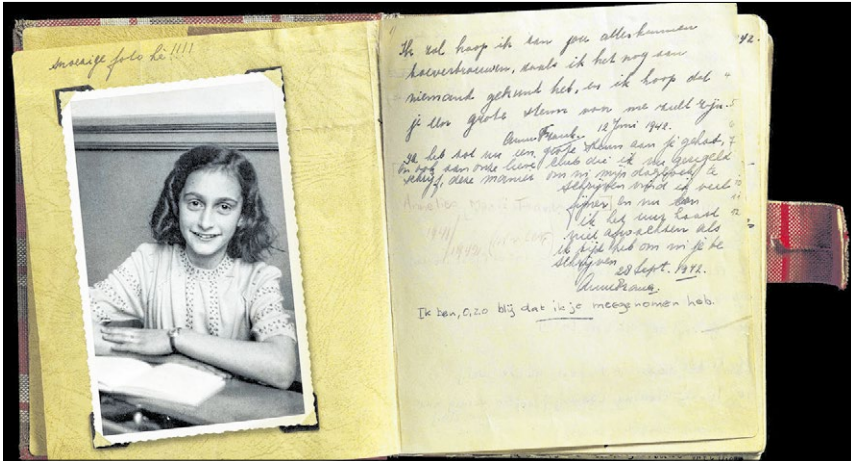 snoezige foto hè!!!!
Ik zal hoop ik aan jou alles kunnen
toevertrouwen, zoals ik het nog aan
niemand gekund heb, en ik hoop dat
je een grote steun van me zult zijn.
Anne Frank. 12 Juni 1942.
Ik heb tot nu een grote steun aan je gehad,
en ook aan onze lieve club die ik nu geregeld
schrijf, deze manier om in mijn dagboek te
schrijven vind ik veel
fijner en nu kan
ik het uur haast
niet afwachten als
ik tijd heb om in je te
schrijven.
28 Sept. 1942.
Anne Frank.
Ik ben, O, zo blij dat ik je meegenomen heb.